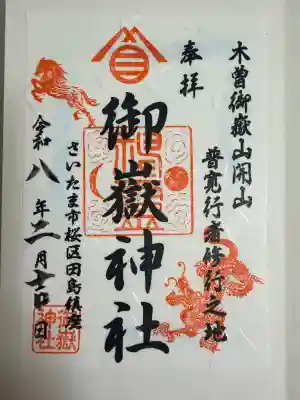 木曽御嶽山開山
普寛行者修行之地
奉拝
御嶽神社
さいたま市桜区田島鎮座
令和八年二月十七日
御嶽
神社